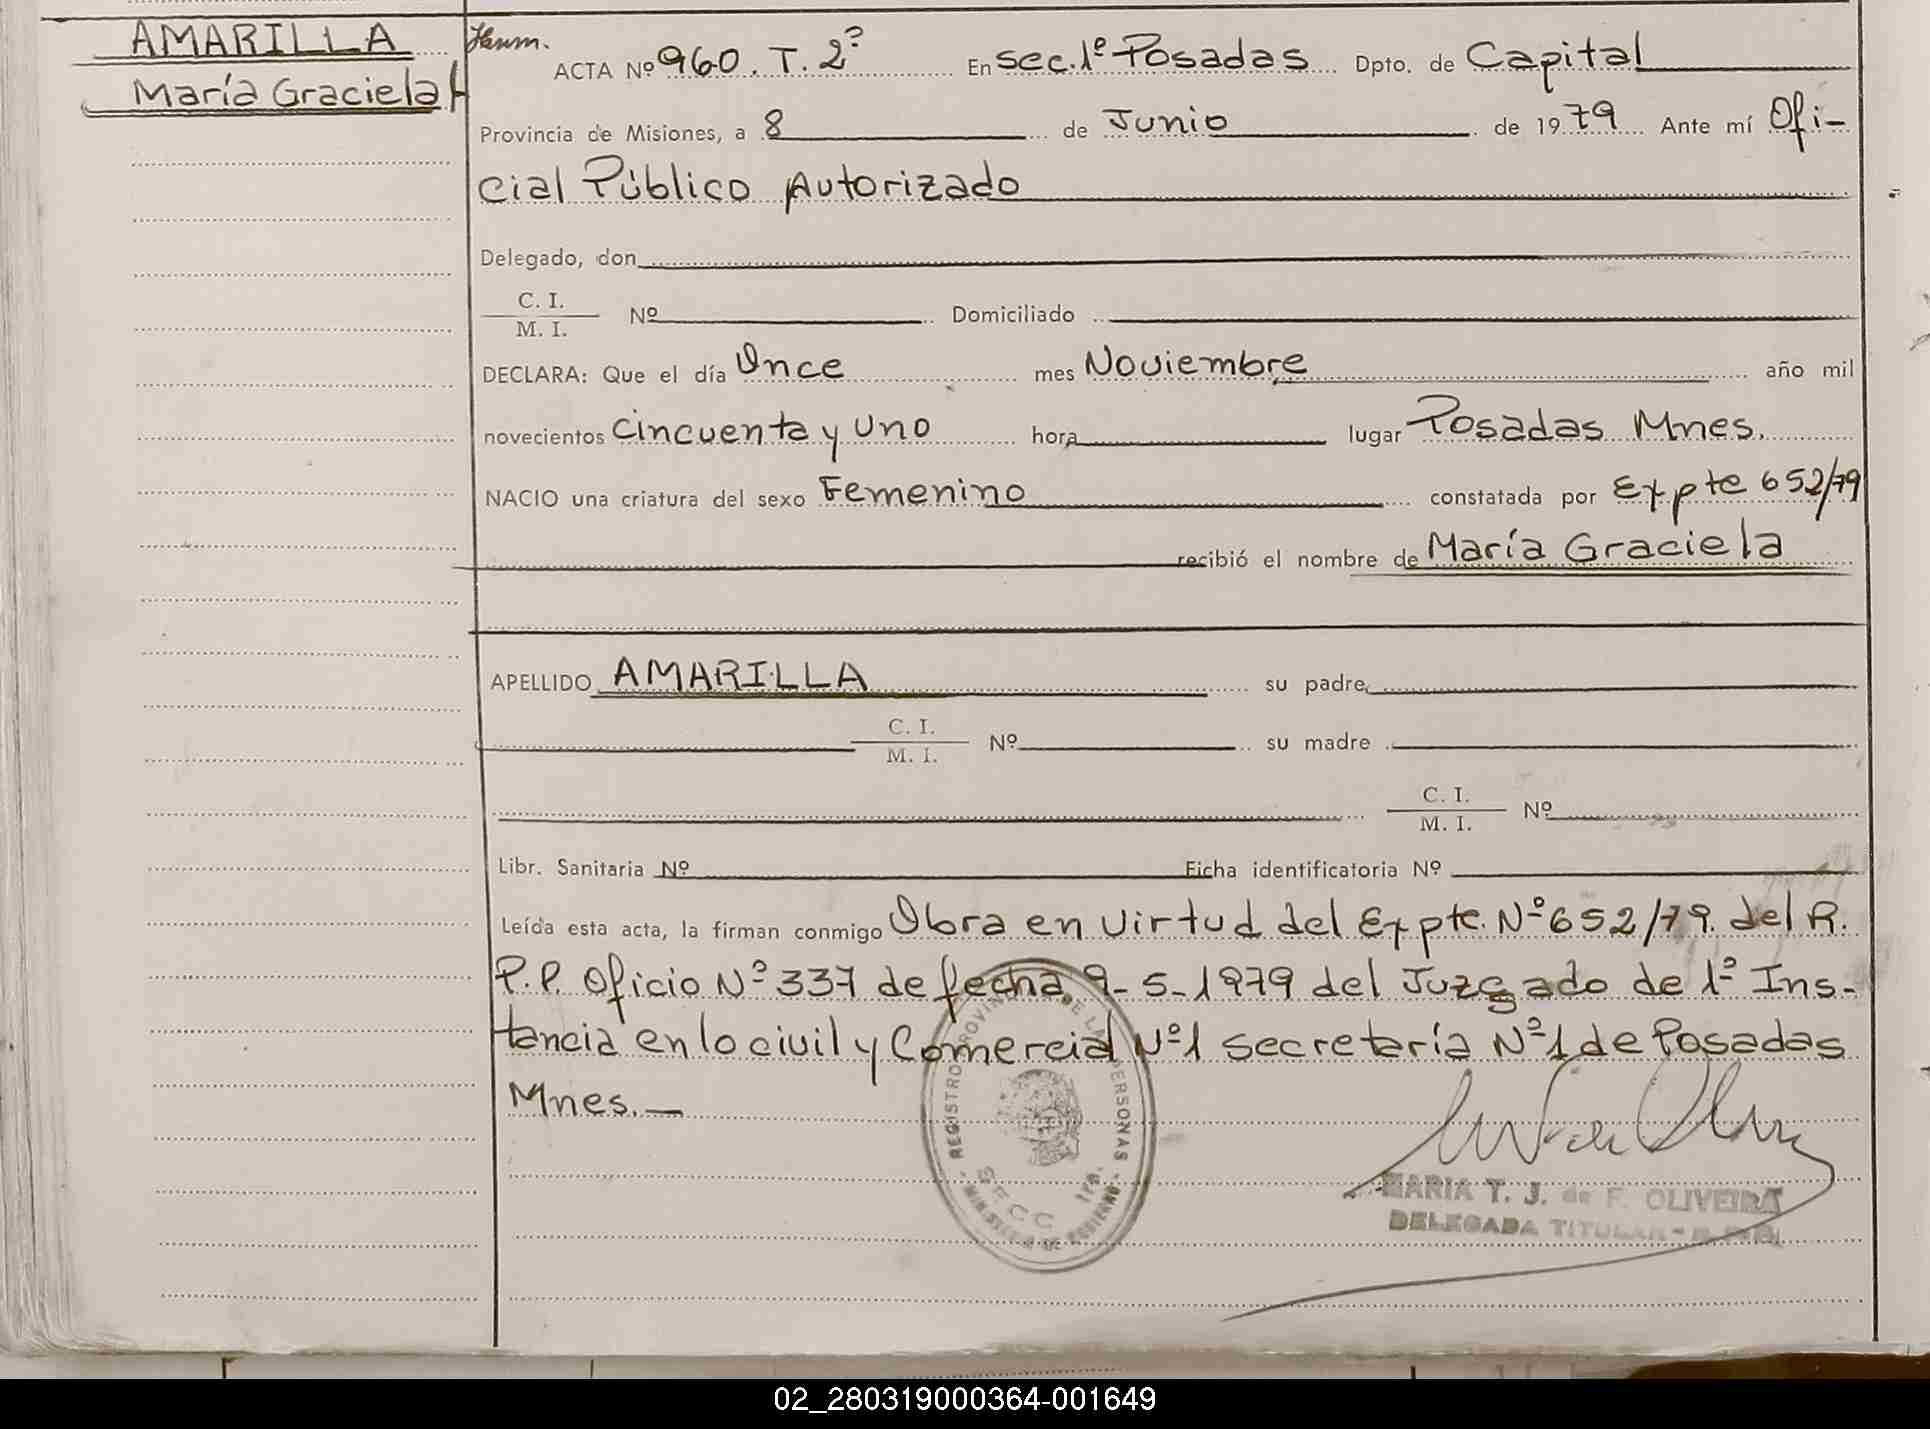 AMARILLA
María Graciela
ACTA Nº 960. T. 2º En sec. 1º Posadas Dpto. de Capital
Provincia de Misiones, a 8 de Junio de 1979 Ante mí Ofi-
cial Público Autorizado
Delegado, don
C. I.
M. I. Nº Domiciliado
DECLARA: Que el día Once mes Noviembre año mil
novecientos cincuenta y uno hora lugar Posadas Mnes.
NACIO una criatura del sexo Femenino constatada por Expte 652/79
recibió el nombre de María Graciela
APELLIDO AMARILLA su padre
C. I.
M. I. Nº su madre
C. I.
M. I. Nº
Libr. Sanitaria Nº Ficha identificatoria Nº
Leída esta acta, la firman conmigo Obra en virtud del Expte. Nº 652/79. del R.
P.P. Oficio Nº 337 de fecha 9-5-1979 del Juzgado de 1º Ins-
tancia en lo civil y Comercial Nº 1 secretaría Nº 1 de Posadas
Mnes.—
REGISTRO PROVINCIAL DE LAS PERSONAS
SECC 1ra.
MINISTERIO DE GOBIERNO
MARIA T. J. de F. OLIVEIRA
DELEGADA TITULAR
02_280319000364-001649